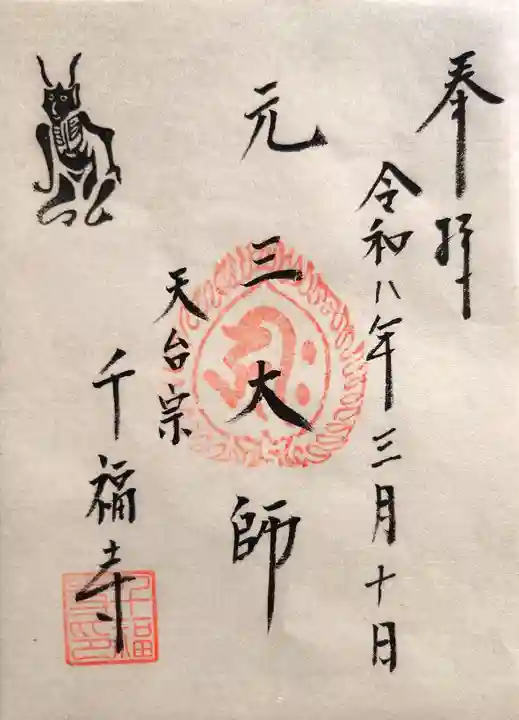 奉拝
令和八年三月十日
元三大師
天台宗
千福寺
千福寺印